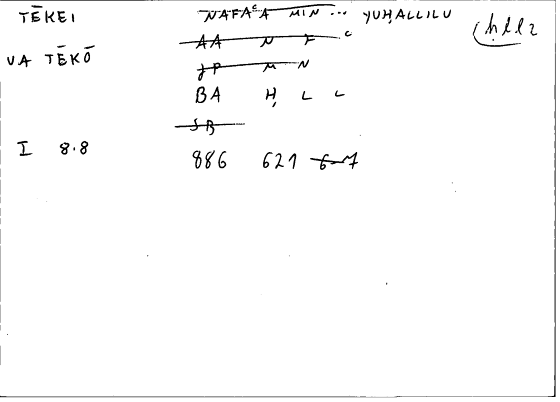 TĒKEI NAFAᶜA MIN ... YUḤALLILU (ḥll2
AA N F ᶜ
VA TĒKŌ JP M N
BA Ḥ L L
JB
I 8.8 886 621 6-7